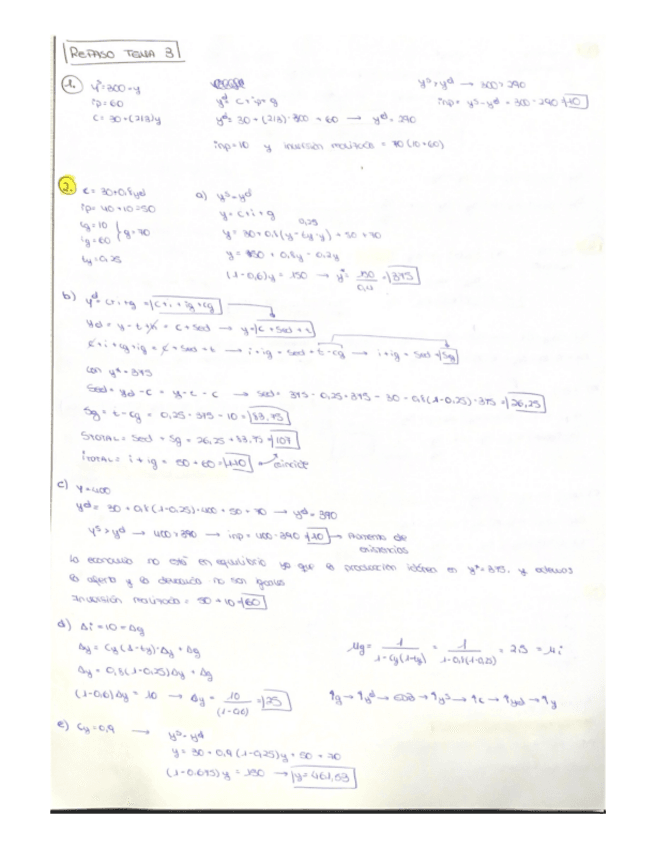 REPASO TEMA 3
1. y^s=300=y
ip=60
c=30+(2/3)y
y^d = c+ip+g
y^d= 30+(2/3)·300+60 → y^d=290
inp=10 y inversión realizada = 70 (10+60)
y^s>y^d → 300>290
inp= y^s-y^d = 300-290=10
2. c= 30+0,8yd
ip= 40+10=50
cg=10
ig=60
g=70
ty=0,25
a) y^s=y^d
y=c+i+g
0,25
y= 30+0,8(y-ty·y)+50+70
y= 150+0,8y-0,2y
(1-0,6)y=150 → y*= 150/0,4 = 375
b) y^d=c+i+g = c+i+ig+cg
yd= y-t = c+sed → y= c+sed+t
c+i+cg+ig = c+sed+t → i+ig = sed+t-cg → i+ig = sed+Sg
con y*=375
Sed= yd-c = y-t-c → sed= 375-0,25·375-30-0,8(1-0,25)·375= 26,25
Sg= t-cg = 0,25·375-10= 83,75
STOTAL= Sed+Sg = 26,25+83,75
iTOTAL= i+ig = 50+60=110 coincide
c) y=400
y^d= 30+0,8(1-0,25)·400+50+70 → y^d=390
y^s>y^d → 400>390 → inp=400-390=10 → Aumento de existencias
La economía no está en equilibrio ya que la producción idónea es y*=375. y además
la oferta y la demanda no son iguales
Inversión realizada= 50+10=60
d) Δi=10=Δg
Δy= cy(1-ty)·Δy+Δg
Δy= 0,8(1-0,25)Δy+Δg
(1-0,6)Δy=10 → Δy= 10/(1-0,6) = 25
μg= 1/(1-cy(1-ty)) = 1/(1-0,8(1-0,25)) = 2,5 = μi
↑g→↑y^d→ →↑y^s→↑c→↑yd→↑y
e) cy=0,9 → y^s=y^d
y= 30+0,9(1-0,25)y+50+70
(1-0,675)y=150 → y=461,53